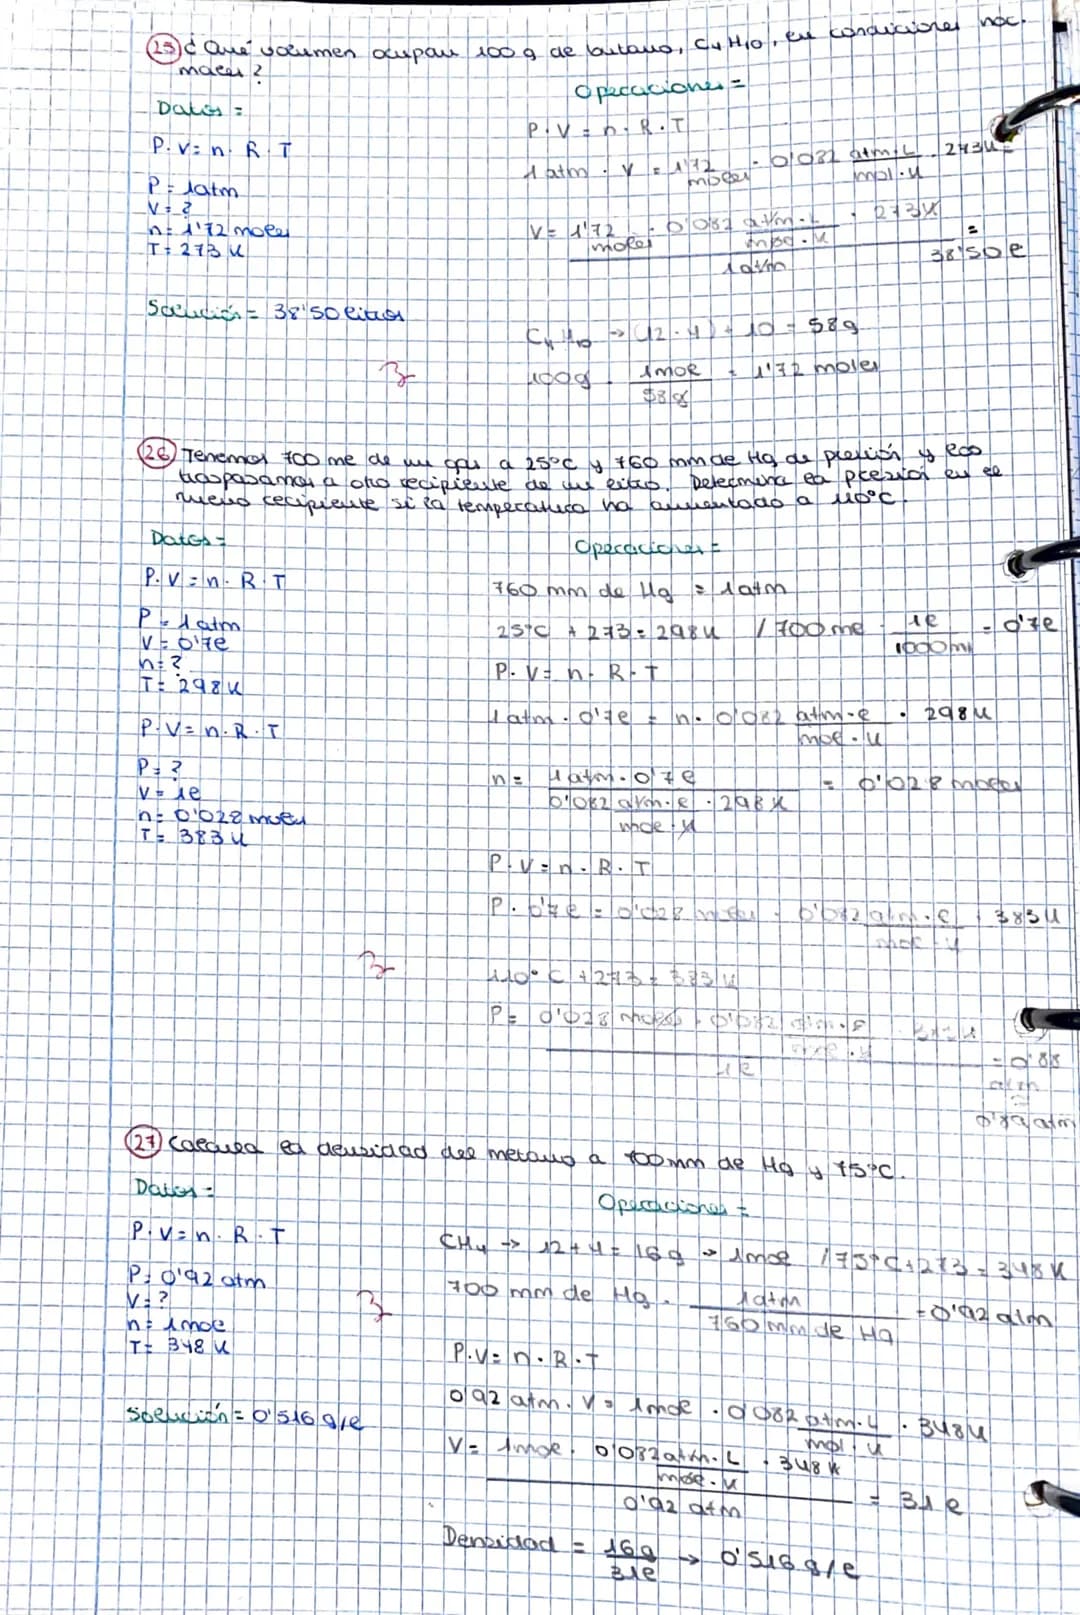 25 ¿Qué volumen ocupan 100 g de butano, C4H10, en condiciones nor-
males?
Datos =
Operaciones =
P.V = n. R. T
P = 1atm
V = ?
n = 1'72 moles
T = 273 K
Solución = 38'50 litros
P.V = n. R. T
1 atm . V = 1'72 moles . 0'082 atm.L/mol.K . 273K =
V = 1'72 moles . 0'082 atm.L/mol.K . 273K / 1atm = 38'50 l
C4H10 → (12.4) + 10 = 58g
100g . 1mol/58g = 1'72 moles
26 Tenemos 700 ml de un gas a 25ºC y 760 mm de Hg de presión y los
traspasamos a otro recipiente de un litro. Determina la presión en el
nuevo recipiente si la temperatura ha aumentado a 110ºC.
Datos =
Operaciones =
P.V = n. R. T
P = 1atm
V = 0'7l
n = ?
T = 298K
P.V = n.R.T
P = ?
V = 1l
n = 0'028 moles
T = 383 K
760 mm de Hg = 1atm
25ºC + 273 = 298K / 700ml . 1l/1000ml = 0'7l
P. V = n. R. T
1atm . 0'7l = n. 0'082 atm.l/mol.K . 298K
n = 1atm. 0'7l / 0'082 atm.l/mol.K . 298K = 0'028 moles
P.V = n. R. T
P. 0'7l = 0'028 moles . 0'082 atm.l/mol.K . 383K
110ºC + 273 = 383K
P = 0'028 moles . 0'082 atm.l/mol.K . 383K / 1l = 0'88 atm
0'89 atm
27 Calcula la densidad del metano a 700mm de Hg y 75ºC.
Datos =
Operaciones =
P.V = n. R. T
P = 0'92 atm
V = ?
n = 1mol
T = 348 K
Solución = 0'516 g/l
CH4 → 12+4 = 16g → 1mol / 75ºC+273 = 348K
700 mm de Hg . 1atm/760 mm de Hg = 0'92 atm
P.V = n. R. T
0'92 atm. V = 1mol . 0'082 atm.L/mol.K . 348K
V = 1mol. 0'082 atm.L/mol.K . 348K / 0'92 atm = 31 l
Densidad = 16g/31l → 0'516 g/l